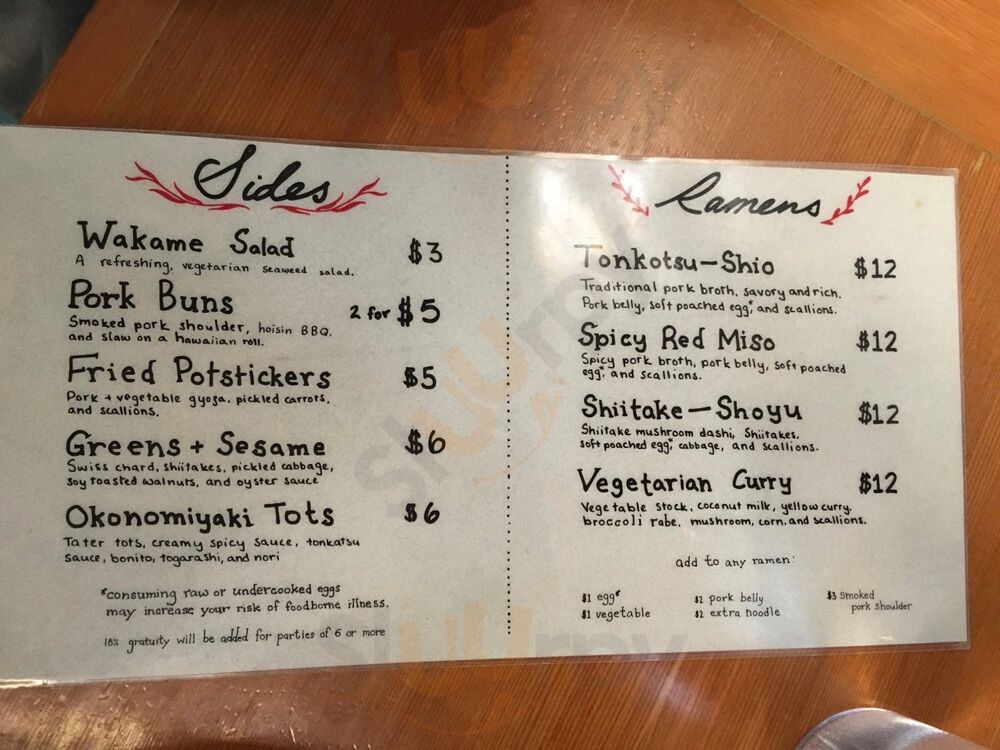 Sides
Wakame Salad $3
A refreshing, vegetarian seaweed salad.
Pork Buns 2 for $5
Smoked pork shoulder, hoisin BBQ,
and slaw on a hawaiian roll.
Fried Potstickers $5
Pork + vegetable gyoza, pickled carrots,
and scallions.
Greens + Sesame $6
Swiss chard, shiitakes, pickled cabbage,
soy toasted walnuts, and oyster sauce
Okonomiyaki Tots $6
Tater tots, creamy spicy sauce, tonkatsu
sauce, bonito, togarashi, and nori
*consuming raw or undercooked eggs
may increase your risk of foodborne illness.
18% gratuity will be added for parties of 6 or more
Ramens
Tonkotsu-Shio $12
Traditional pork broth, savory and rich.
Pork belly, soft poached egg*, and scallions.
Spicy Red Miso $12
Spicy pork broth, pork belly, soft poached
egg*, and scallions.
Shiitake-Shoyu $12
Shiitake mushroom dashi, Shiitakes,
soft poached egg*, cabbage, and scallions.
Vegetarian Curry $12
Vegetable stock, coconut milk, yellow curry,
broccoli rabe, mushroom, corn, and scallions.
add to any ramen:
$1 egg* $2 pork belly $3 smoked
pork shoulder
$1 vegetable $2 extra noodle
sluurpy
sluurpy
sluurpy